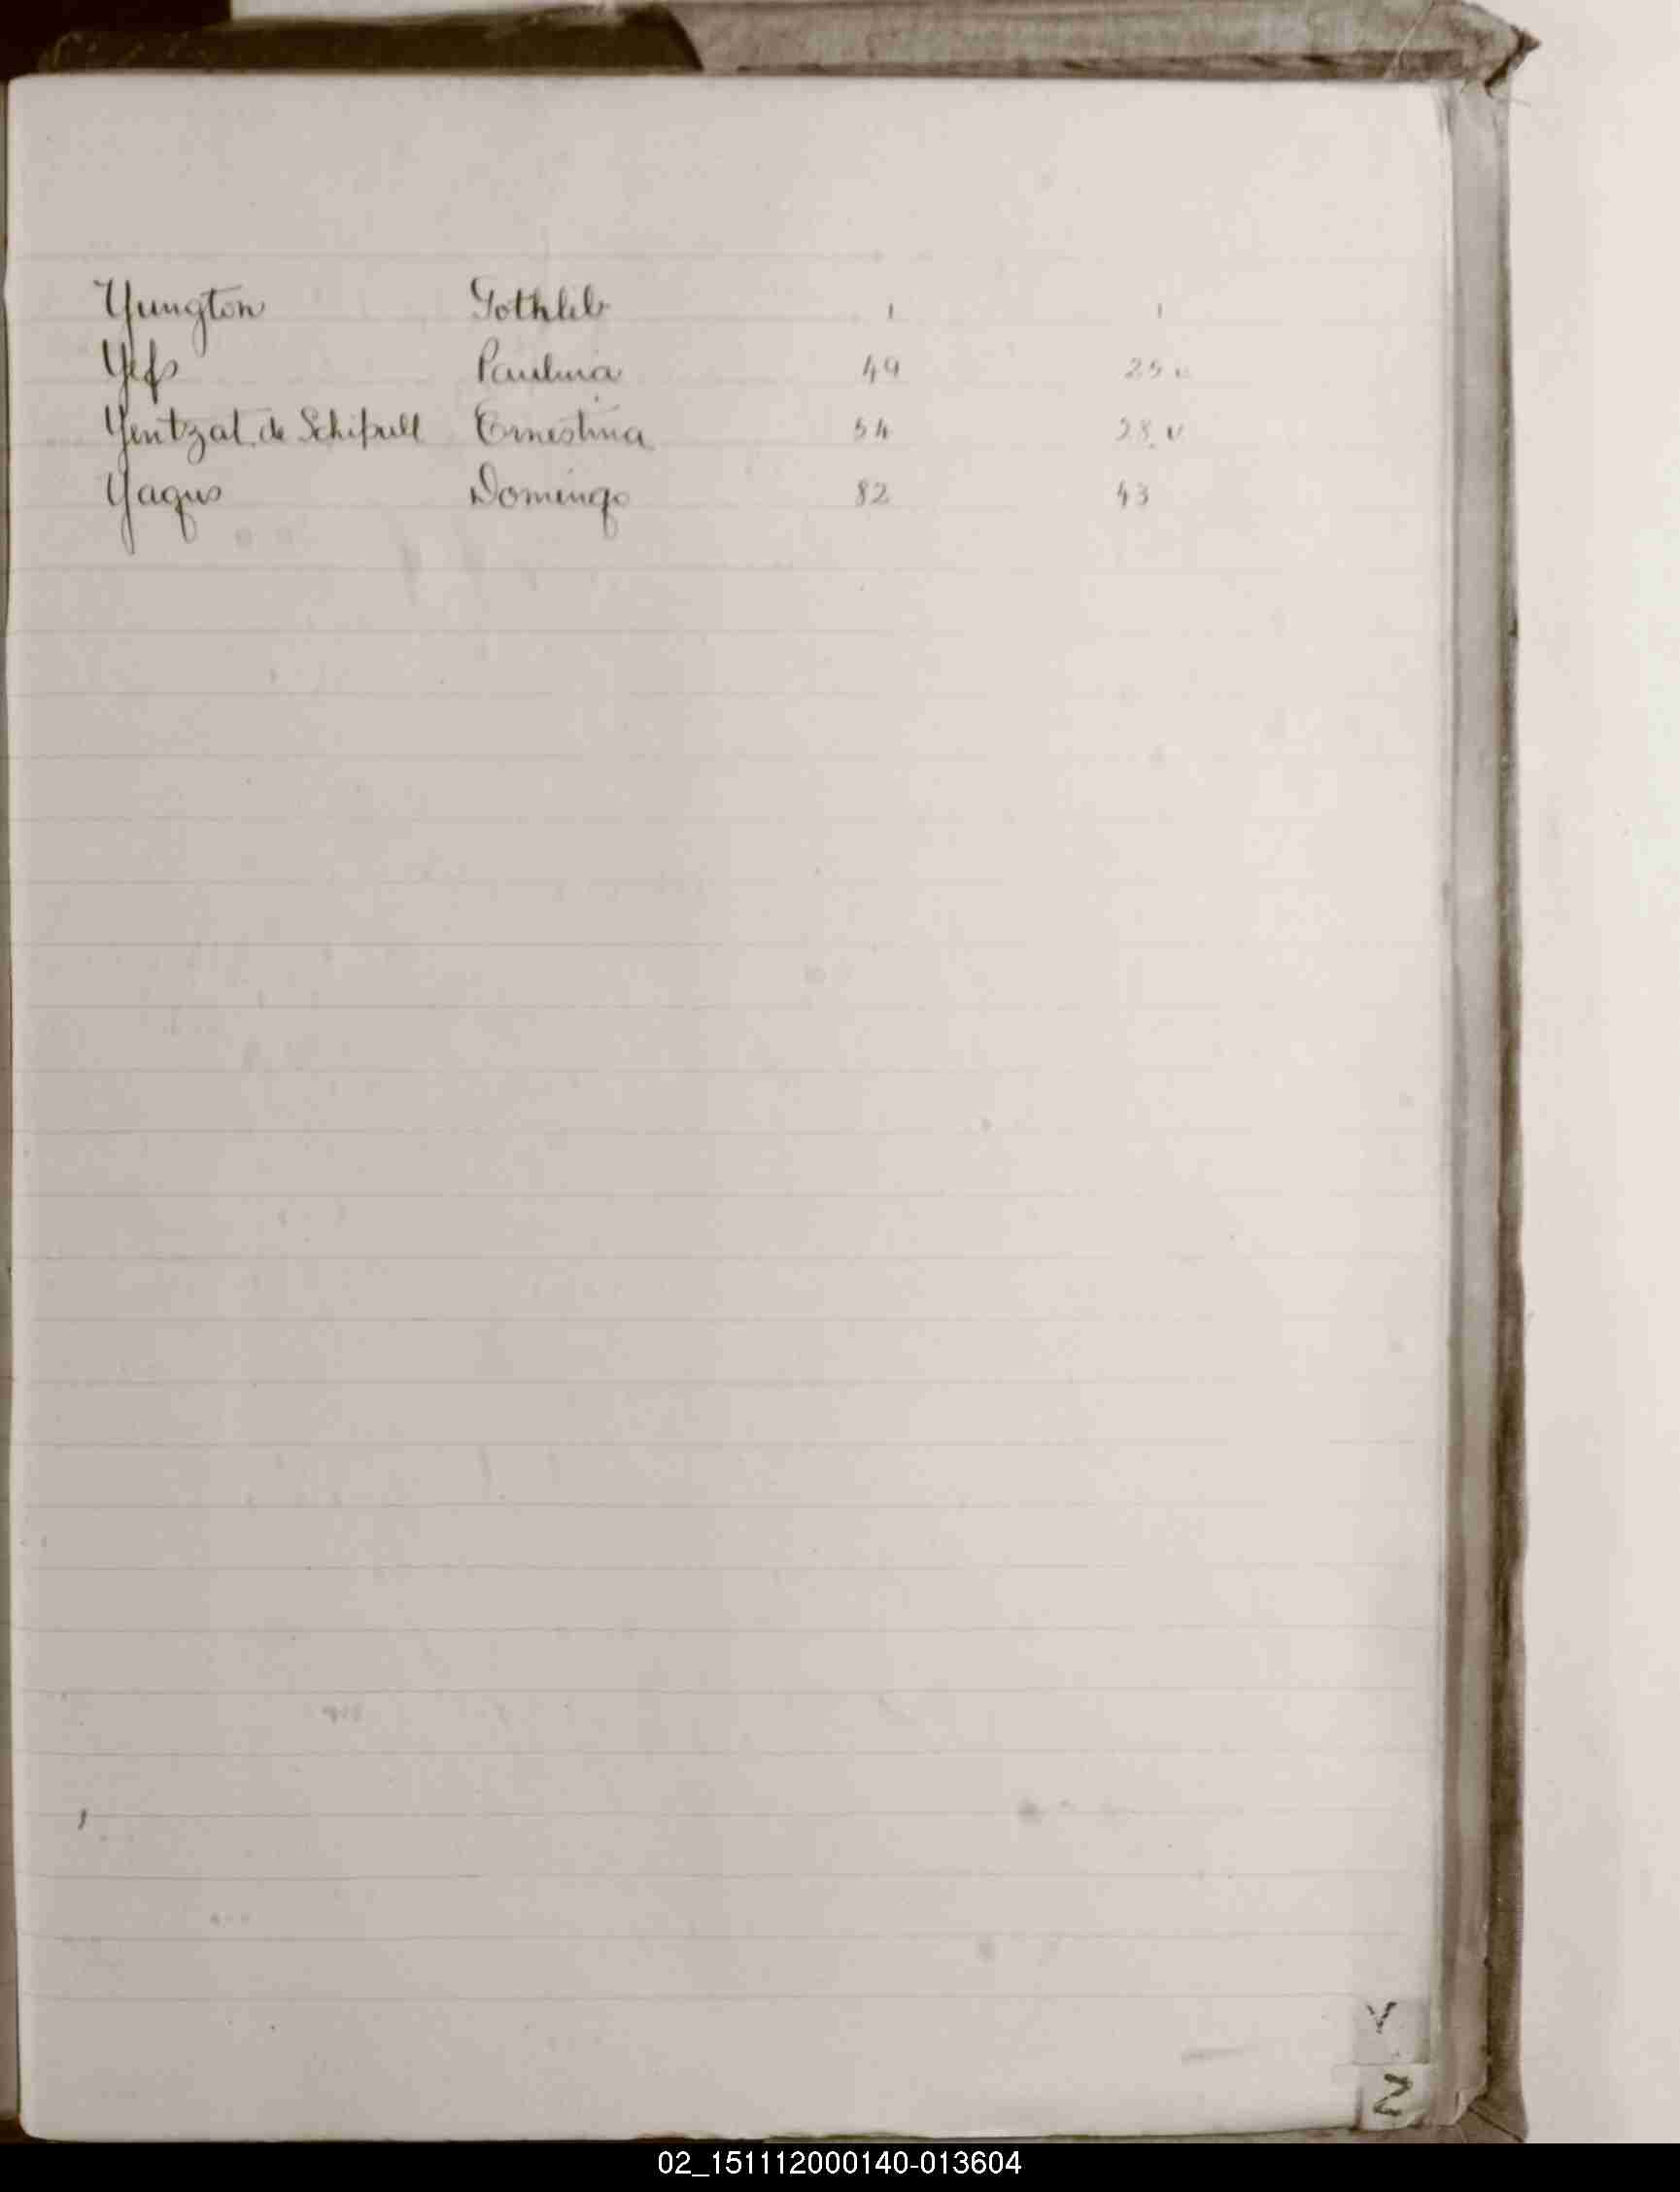 Yungton Gothlib 1 1
Yefs Paulina 49 25 v
Yentzat de Schipull Ernestina 54 28 v
Yaqus Domingo 82 43
Y
Z
02_151112000140-013604